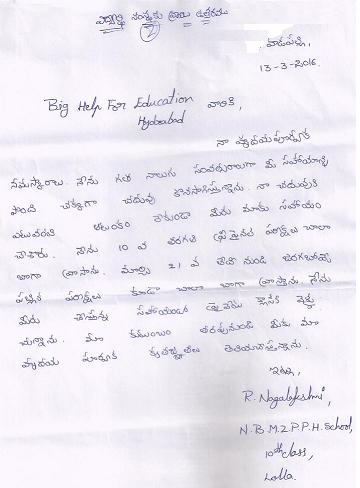 విద్యార్థి సంస్థకు వ్రాయు ఉత్తరము
2
వాడపల్లి,
13-3-2016.
Big Help For Education వారికి,
Hyderabad
నా హృదయపూర్వక
నమస్కారాలు. నేను గత నాలుగు సంవత్సరాలుగా మీ సహాయాన్ని
పొంది చక్కగా చదువు కొనసాగిస్తున్నాను. నా చదువుకి
ఎటువంటి ఆటంకం లేకుండా మీరు మాకు సహాయం
చేశారు. నేను 10 వ తరగతి ప్రీ ఫైనల్ పరీక్షలు చాలా
బాగా వ్రాసాను. మార్చి 21 వ తేదీ నుండి జరగబోయే
పబ్లిక్ పరీక్షలు కూడా చాలా బాగా వ్రాస్తాను. నేను
మీరు చేస్తున్న సహాయంతో క్లాసుకి
చున్నాను. మా కుటుంబం తరపునుండి మీకు మా
హృదయ పూర్వక కృతజ్ఞతలు తెలియచేస్తున్నాను.
ఇట్లు,
R. Nagalakshmi,
N.B.M.Z.P.P.H. School,
10th class,
Lolla.